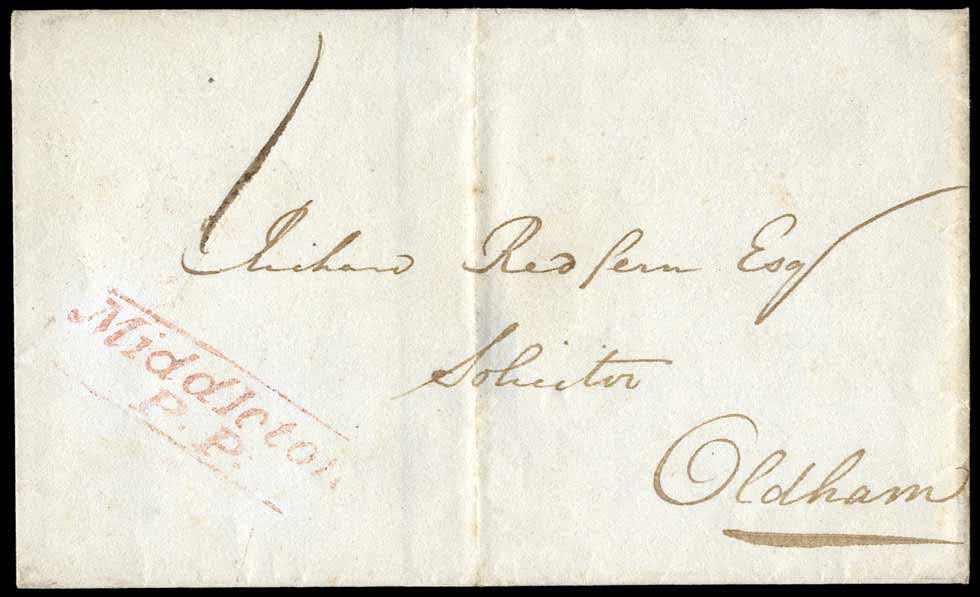 1
Richard Redfern Esq
Solicitor
Oldham
Middleton
P.P.